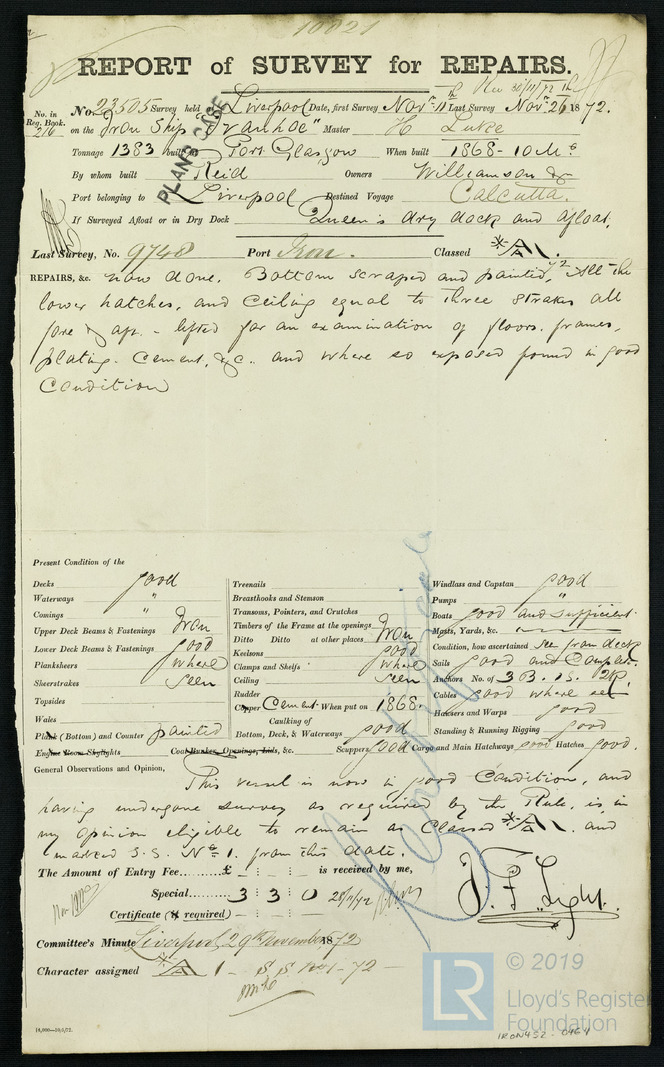 10021
REPORT of SURVEY for REPAIRS.
Rec 30/11/72
No. in Reg. Book. 216
No. 23505 Survey held at Liverpool Date, first Survey Novr 11th Last Survey Novr 26 1872.
on the Iron Ship "Ivanhoe" Master H Luke
PLANS CASE
Tonnage 1383 built at Port Glasgow When built 1868 - 10 Mo
By whom built Reid Owners Williamson &
Port belonging to Liverpool Destined Voyage Calcutta.
If Surveyed Afloat or in Dry Dock Queen's dry dock and afloat.
Last Survey, No. 9748 Port Iron. Classed A 1.
REPAIRS, &c. now done. Bottom scraped and painted, All the
lower hatches, and Ceiling equal to three strakes all
fore & aft - lifted for an examination of floors, frames,
plating, Cement, &c. and where so exposed found in good
Condition
Present Condition of the
Decks good
Waterways "
Comings "
Upper Deck Beams & Fastenings Iron
Lower Deck Beams & Fastenings good
Planksheers where
Sheerstrakes seen
Topsides
Wales
Plank (Bottom) and Counter painted
Engine Room Skylights
Treenails
Breasthooks and Stemson
Transoms, Pointers, and Crutches
Timbers of the Frame at the openings
Ditto Ditto at other places Iron
Keelsons good
Clamps and Shelfs where
Ceiling seen
Rudder
Copper Cement When put on 1868
Caulking of
Bottom, Deck, & Waterways good
Coal Bunker Openings, Lids, &c. Scuppers good
Windlass and Capstan good
Pumps "
Boats good and sufficient
Masts, Yards, &c.
Condition, how ascertained see from deck
Sails good and Complete.
Anchors No. of 3 B. 1 S. 2 K.
Cables good where seen
Hawsers and Warps good
Standing & Running Rigging good
Cargo and Main Hatchways good Hatches good.
General Observations and Opinion,
This vessel is now in good Condition, and
having undergone survey as required by the Rule, is in
my opinion eligible to remain as Classed A 1. and
marked S.S. No 1. from this date.
The Amount of Entry Fee......£ : : is received by me,
Special...... 3 3 0 28/11/72
Certificate (if required) - : - : -
J. F. Light.
Committee's Minute Liverpool 29th November 1872
Character assigned A 1 - S S No 1 - 72 -
18,000—10/6/72.
© 2019
LR
Lloyd's Register
Foundation
IRON452-0464